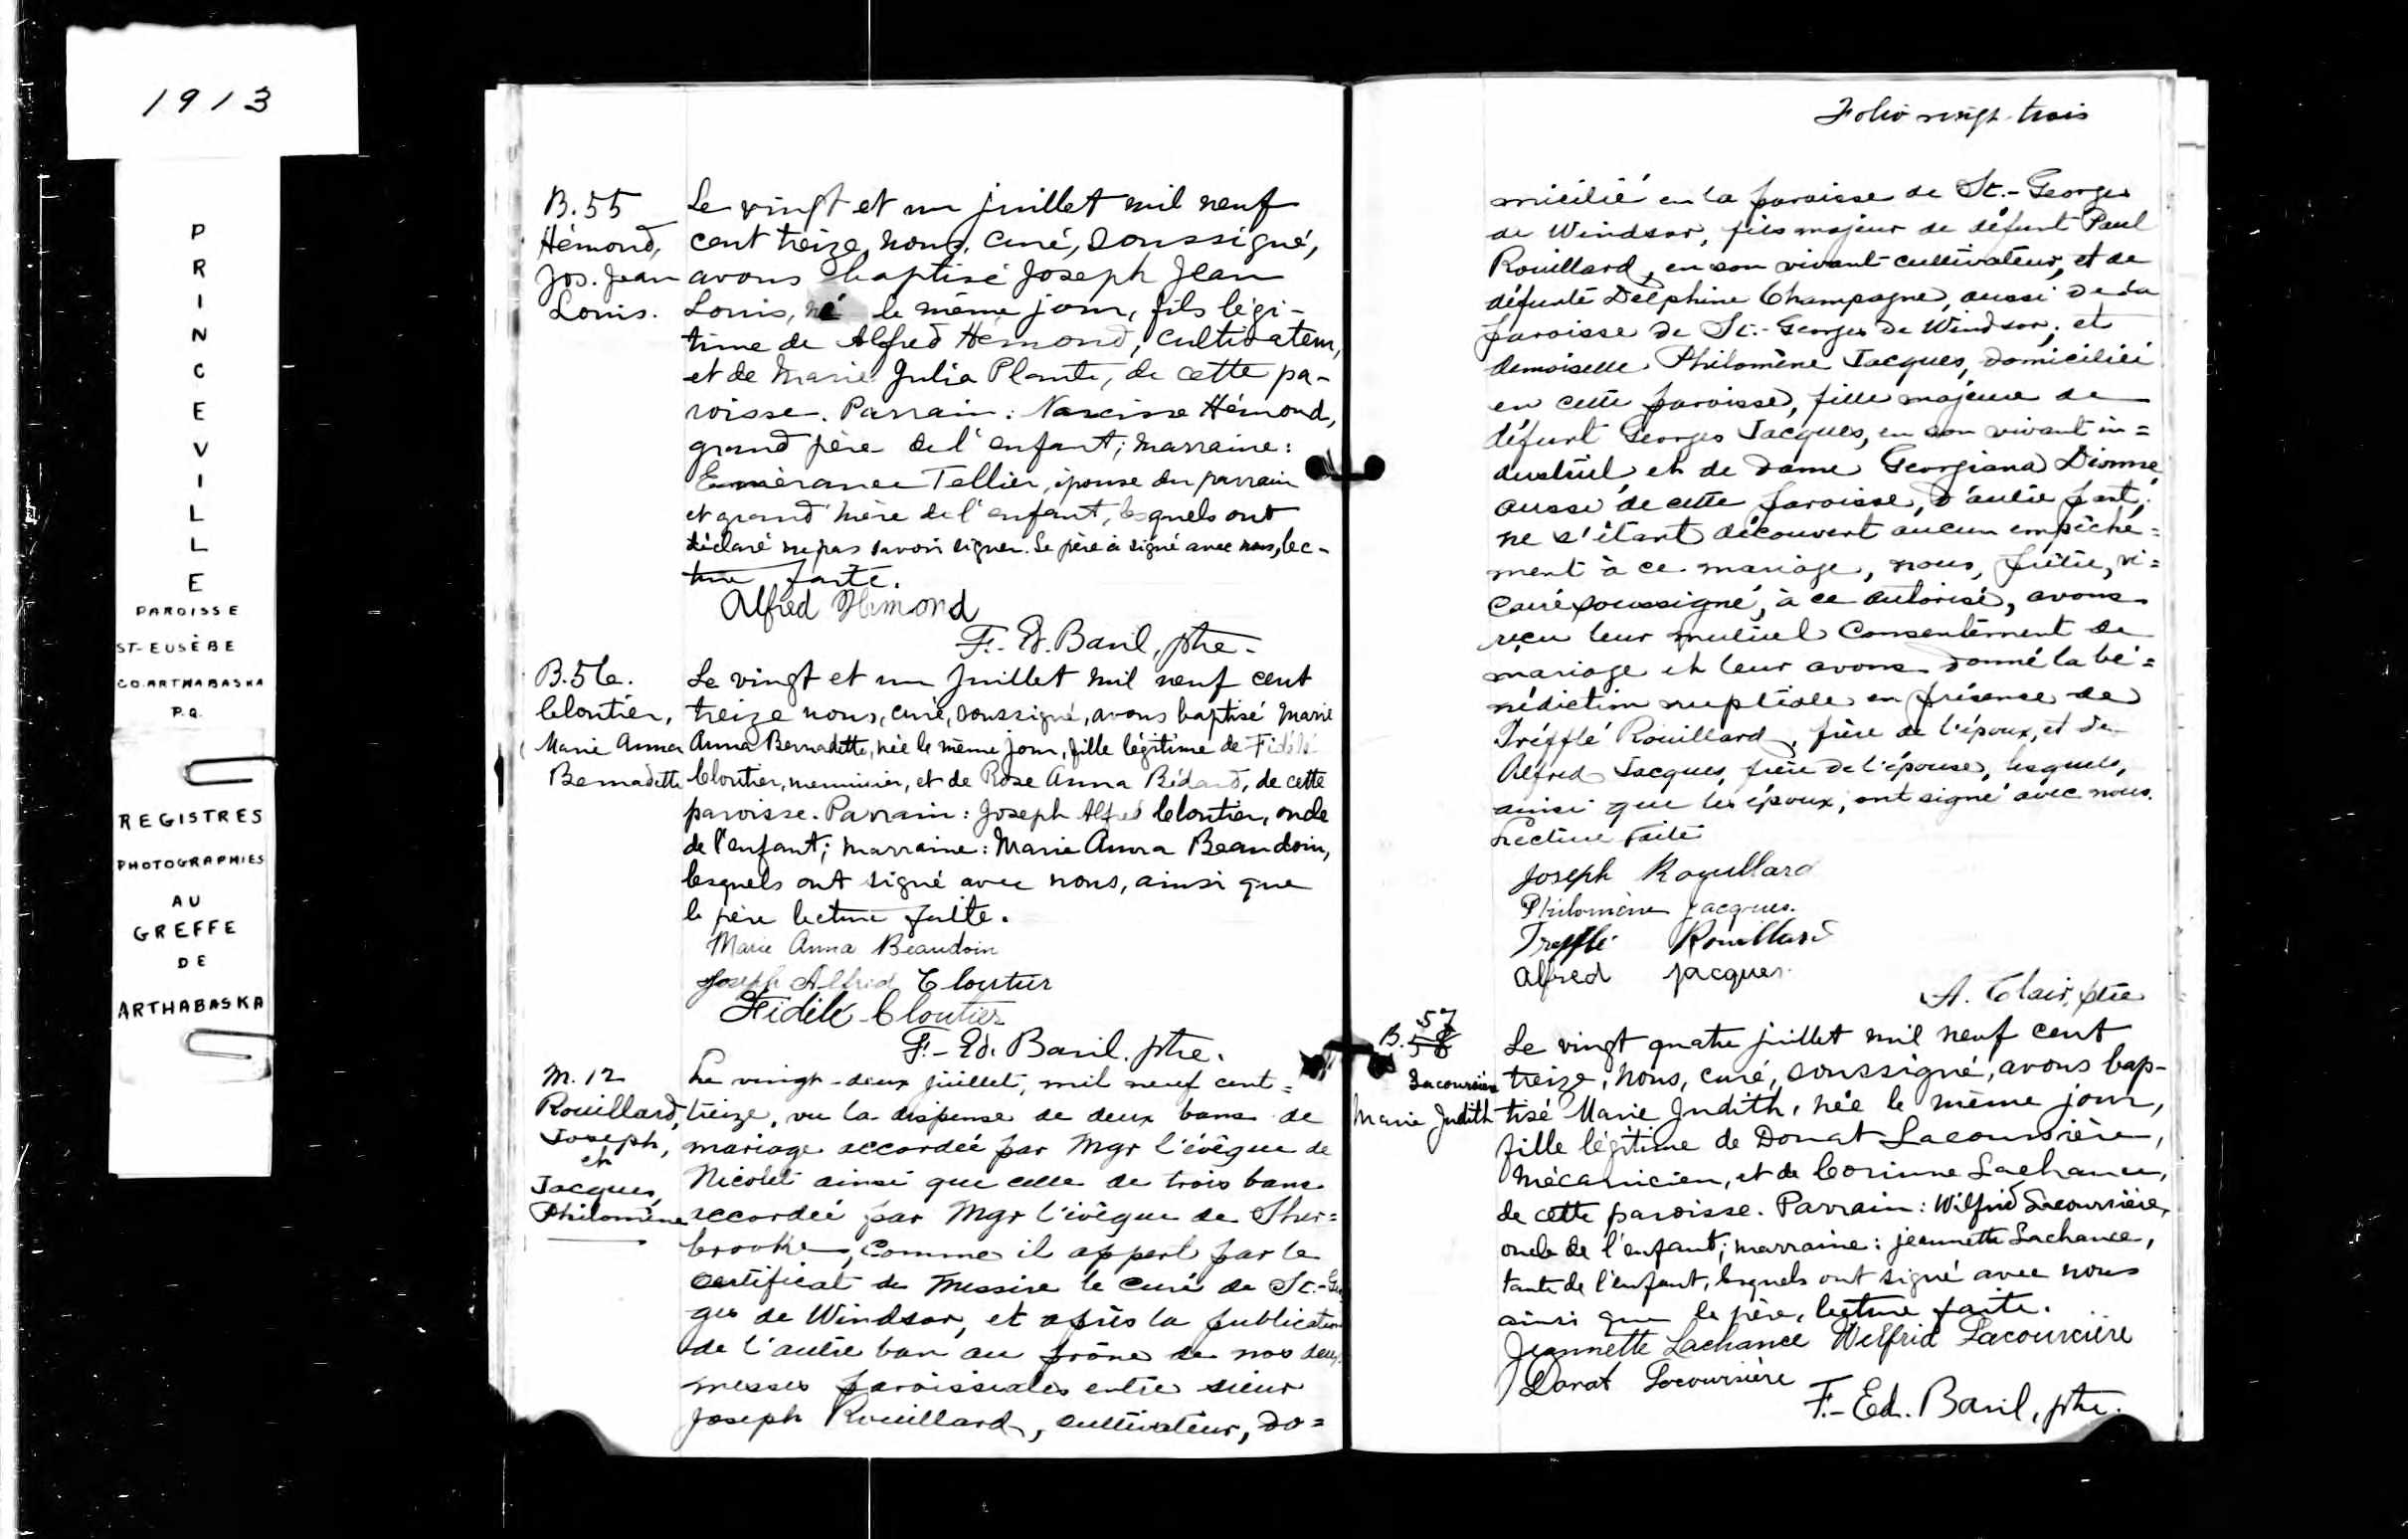 1913
PRINCEVILLE
PAROISSE
ST-EUSÈBE
CO. ARTHABASKA
P.Q.
REGISTRES
PHOTOGRAPHIES
AU
GREFFE
DE
ARTHABASKA
B. 55
Hémond,
Jos. Jean
Louis.
Le vingt et un juillet mil neuf
cent treize, nous, curé, soussigné,
avons baptisé Joseph Jean
Louis, né le même jour, fils légi-
time de Alfred Hémond, cultivateur,
et de Marie Julia Plante, de cette pa-
roisse. Parrain: Narcisse Hémond,
grand père de l'enfant; marraine:
Emérance Tellier, épouse du parrain
et grand'mère de l'enfant, lesquels ont
déclaré ne pas savoir signer. Le père a signé avec nous, lec-
ture faite.
Alfred Hemond
F.-Ed. Baril, ptre.
B. 56.
Cloutier,
Marie Anna
Bernadette
Le vingt et un juillet mil neuf cent
treize nous, curé, soussigné, avons baptisé Marie
Anna Bernadette, née le même jour, fille légitime de Fidèle
Cloutier, menuisier, et de Rose Anna Bédard, de cette
paroisse. Parrain: Joseph Alfred Cloutier, oncle
de l'enfant; marraine: Marie Anna Beaudoin,
lesquels ont signé avec nous, ainsi que
le père lecture faite.
Marie Anna Beaudoin
Joseph Alfred Cloutier
Fidèle Cloutier
F.-Ed. Baril, ptre.
M. 12
Rouillard,
Joseph,
et
Jacques,
Philomène
Le vingt-deux juillet, mil neuf cent=
treize, vu la dispense de deux bans de
mariage accordée par Mgr l'évêque de
Nicolet ainsi que celle de trois bans
accordée par Mgr l'évêque de Sher=
brooke, comme il appert par le
certificat de Messire le curé de St.-Geor
ges de Windsor, et après la publication
de l'autre ban au prône de nos deux
messes paroissiales entre sieur
Joseph Rouillard, cultivateur, do=
Folio vingt-trois
micilié en la paroisse de St.-Georges
de Windsor, fils majeur de défunt Paul
Rouillard, en son vivant cultivateur, et de
défunte Delphine Champagne, aussi de la
paroisse de St.-Georges de Windsor; et
demoiselle Philomène Jacques, domiciliée
en cette paroisse, fille majeure de
défunt Georges Jacques, en son vivant in=
dustriel, et de dame Georgiana Dionne
aussi de cette paroisse, d'autre part;
ne s'étant découvert aucun empêche=
ment à ce mariage, nous, prêtre, vi=
caire soussigné, à ce autorisé, avons
reçu leur mutuel consentement de
mariage et leur avons donné la bé=
nédiction nuptiale en présence de
Tréfflé Rouillard, frère de l'époux, et de
Alfred Jacques, frère de l'épouse, lesquels,
ainsi que les époux, ont signé avec nous.
Lecture faite
Joseph Rouillard
Philomène Jacques.
Trefflé Rouillard
Alfred Jacques.
A. Clair, ptre
B. 57 58
Lacoursière
Marie Judith
Le vingt quatre juillet mil neuf cent
treize, nous, curé, soussigné, avons bap-
tisé Marie Judith, née le même jour,
fille légitime de Donat Lacoursière,
mécanicien, et de Corinne Lachance,
de cette paroisse. Parrain: Wilfrid Lacoursière,
oncle de l'enfant; marraine: Jeannette Lachance,
tante de l'enfant, lesquels ont signé avec nous
ainsi que le père, lecture faite.
Jeannette Lachance Wilfrid Lacourcière
Donat Lacoursière
F.-Ed. Baril, ptre.